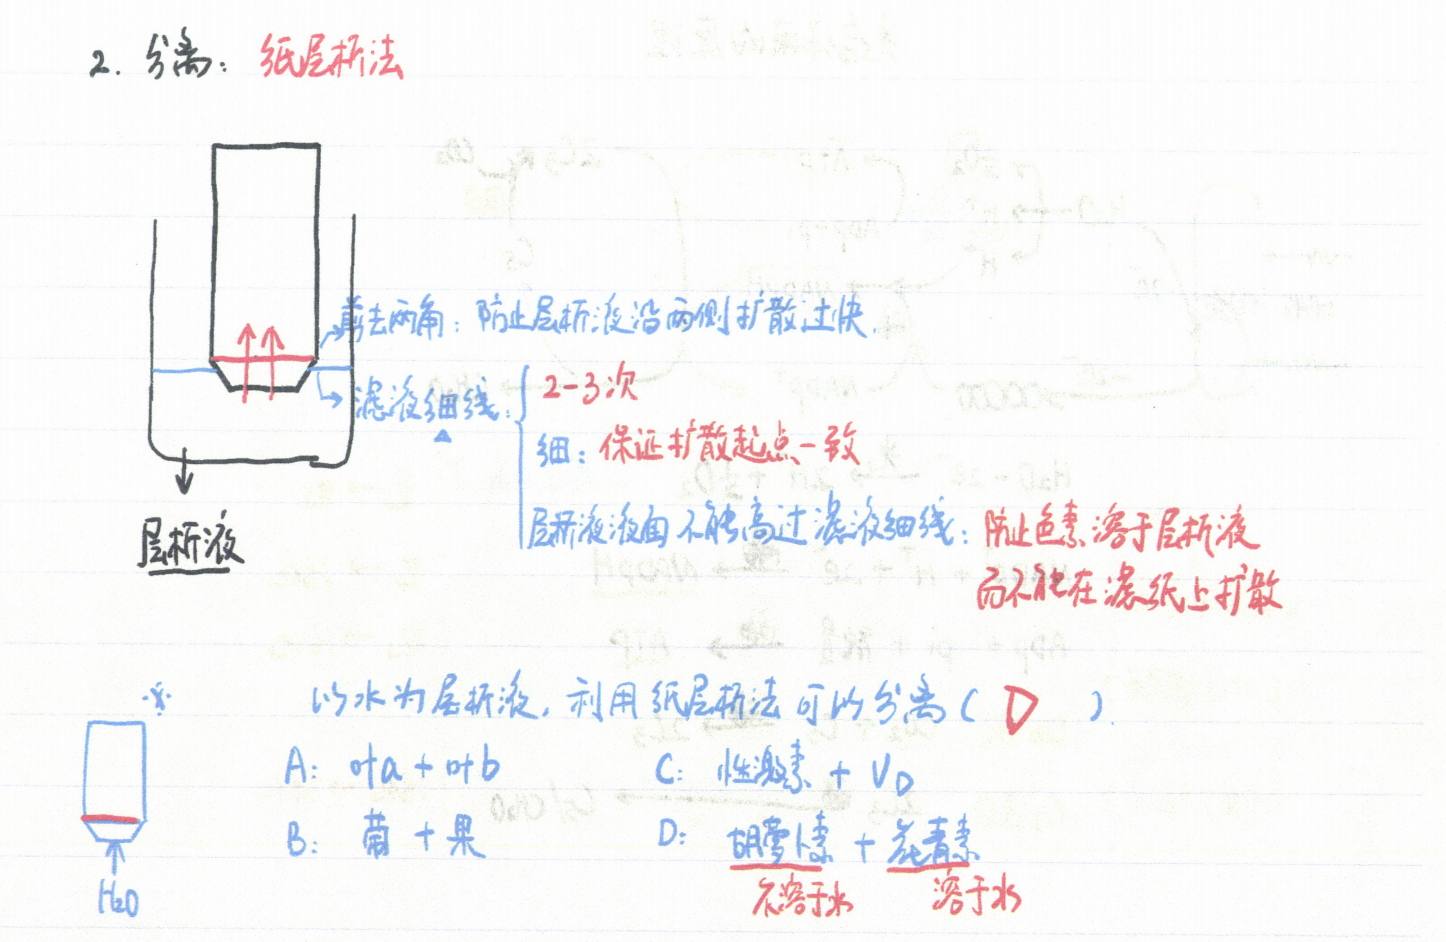 2. 分离: 纸层析法
剪去两角: 防止层析液沿两侧扩散过快.
滤液细线:
2-3次
细: 保证扩散起点一致
层析液液面不能高过滤液细线: 防止色素溶于层析液
而不能在滤纸上扩散
层析液
以水为层析液, 利用纸层析法可以分离( D ).
A: 叶a + 叶b
C: 性激素 + VD
B: 葡 + 果
D: 胡萝卜素 + 花青素
不溶于水 溶于水
H2O